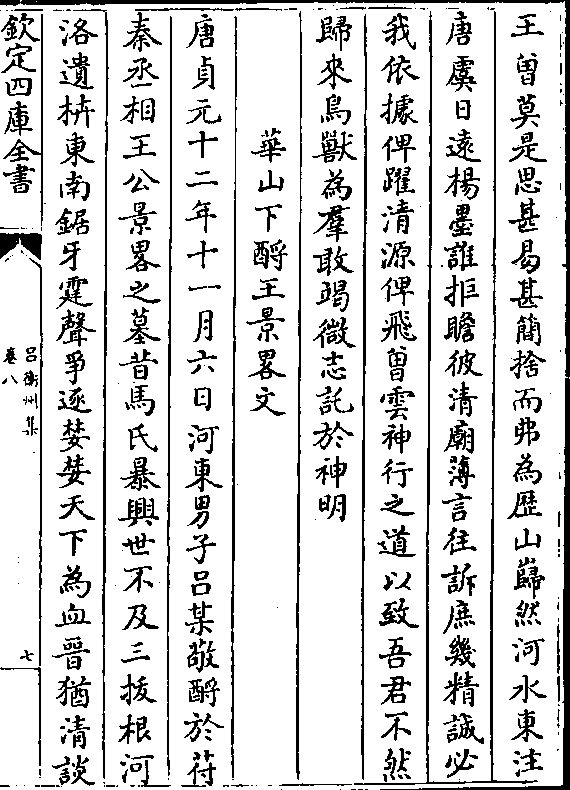 王曽莫是思甚易甚簡捨而弗為厯山巋然河水東注
唐虞日遠楊墨誰拒瞻彼清廟薄言往訴庶幾精誠必
我依據俾躍清源俾飛曽雲神行之道以致吾君不然
歸來鳥獸為羣敢竭微志託於神明
華山下酹王景畧文
唐貞元十二年十一月六日河東男子吕某敬酹於苻
秦丞相王公景畧之墓昔馬氏暴興世不及三拔根河
洛遺枿東南鋸牙霆聲爭逐婪婪天下為血晉猶清談
欽定四庫全書
吕衡州集
卷八
七